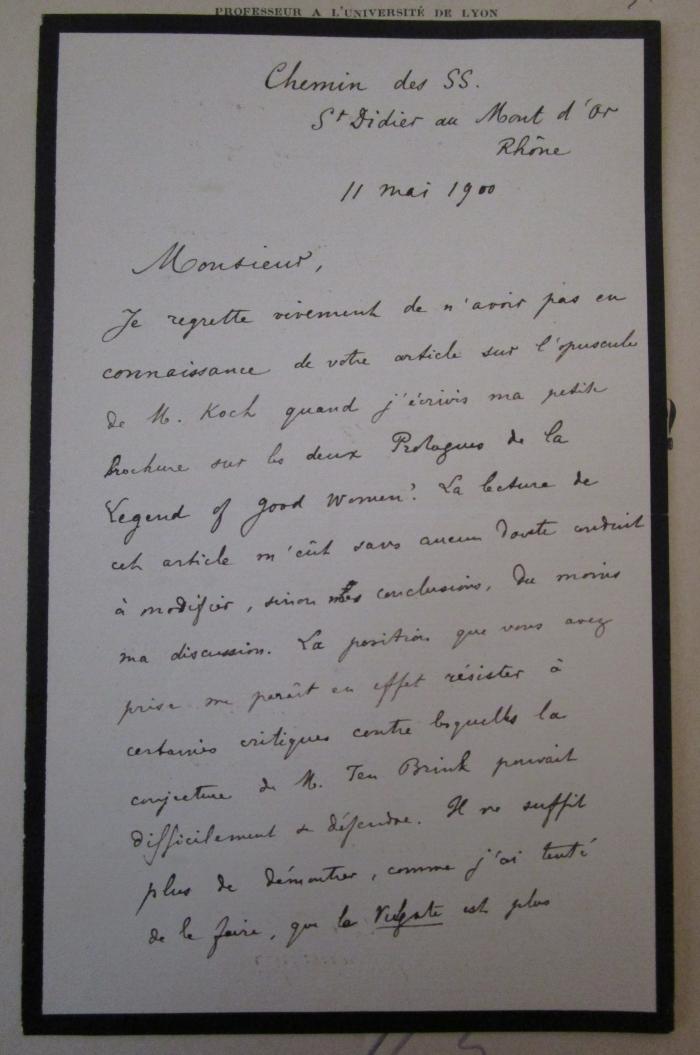 PROFESSEUR A L'UNIVERSITÉ DE LYON
Chemin des SS.
St Didier au Mont d'Or
Rhône
11 mai 1900
Monsieur,
Je regrette vivement de n'avoir pas eu
connaissance de votre article sur l'opuscule
de M. Koch quand j'écrivis ma petite
brochure sur les deux Prologues de la
Legend of Good Women? La lecture de
cet article m'eût sans aucun doute conduit
à modifier, sinon mes conclusions, du moins
ma discussion. La position que vous avez
prise me paraît en effet résister à
certaines critiques contre lesquelles la
conjecture de M. Ten Brink pouvait
difficilement se défendre. Il ne suffit
plus de démontrer, comme j'ai tenté
de le faire, que la Vulgate est plus